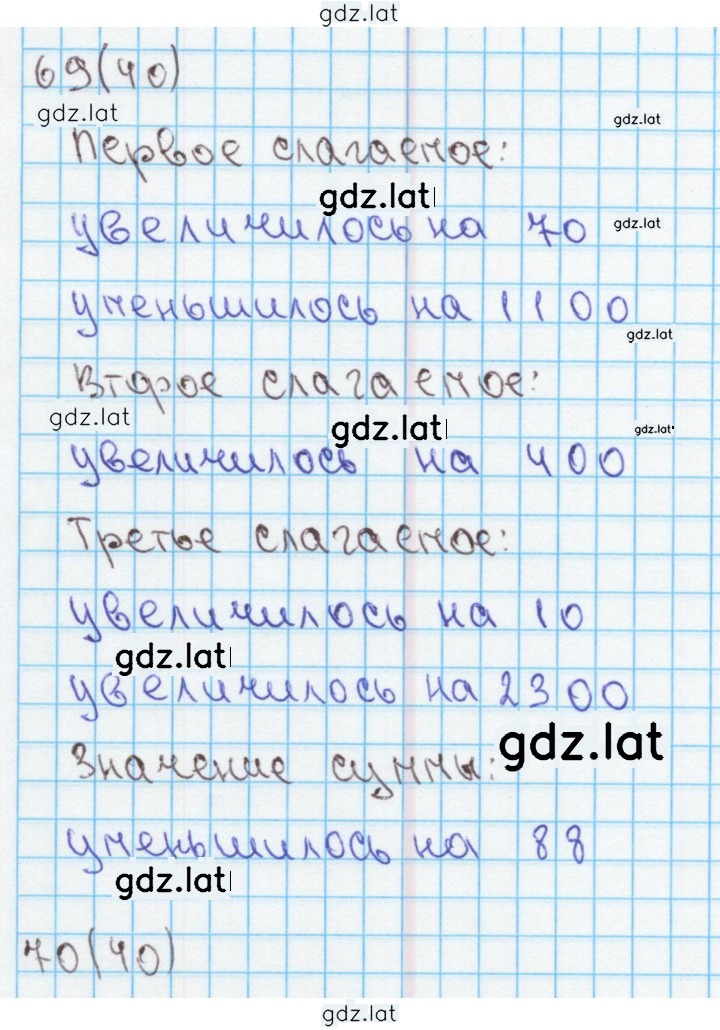 gdz.lat
69(40)
gdz.lat
Первое слагаемое:
gdz.lat
gdz.lat
увеличилось на 70
gdz.lat
уменьшилось на 1100
gdz.lat
Второе слагаемое:
gdz.lat
gdz.lat
gdz.lat
увеличилось на 400
Третье слагаемое:
увеличилось на 10
gdz.lat
увеличилось на 2300
gdz.lat
Значение суммы:
уменьшилось на 88
gdz.lat
70(40)
gdz.lat